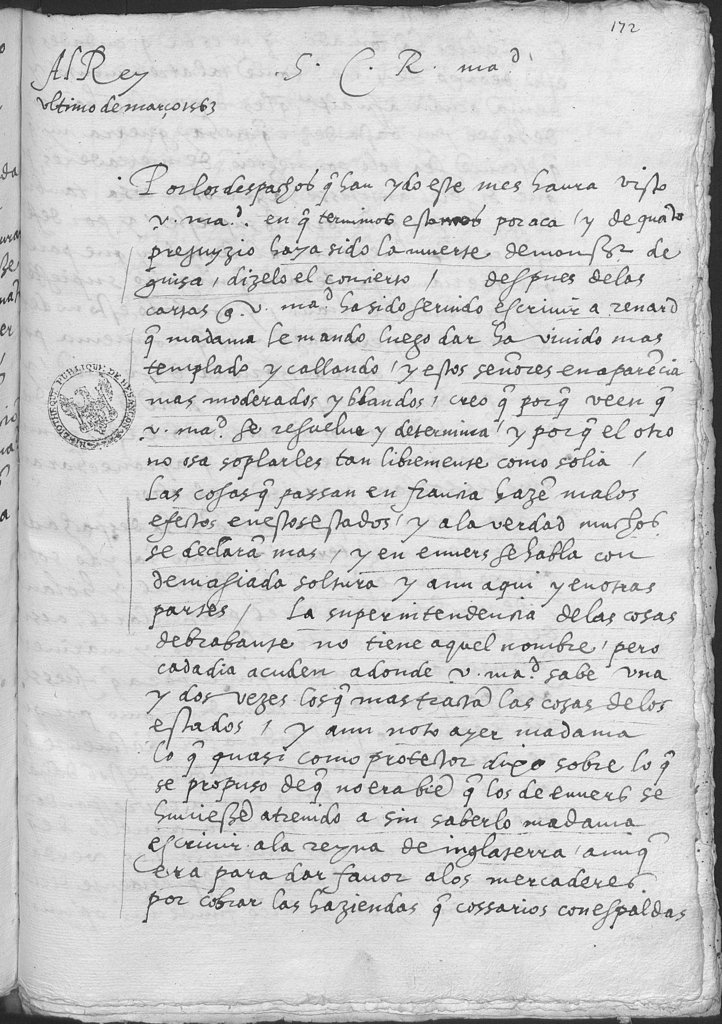 172
Al Rey S. C. R. mad
ultimo de março 1563
Por los despachos q̃ han ydo este mes haura visto
v. mad. en q̃ terminos estamos por aca / y de quãto
prejuyzio haya sido la muerte de monsr de
guisa / dizelo el concierto / despues de las
cartas q̃ v. mad ha sido seruido escriuir a renard
q̃ madama le mando luego dar ha viuido mas
templado y callando / y estos señores en aparẽcia
mas moderados y blandos / creo q̃ porq̃ veen q̃
v. mad. se resuelue y determina / y porq̃ el otro
no osa soplarles tan libremente como solia /
Las cosas q̃ passan en francia hazẽ malos
efetos en estos estados / y a la verdad muchos
se declarã mas / y en enuers se habla con
demasiada soltura y aun aqui y en otras
partes / La superintendencia de las cosas
de brabante no tiene aquel nombre / pero
cada dia acuden adonde v. mad sabe vna
y dos vezes los q̃ mas tratã las cosas de los
estados / y aun noto ayer madama
lo q̃ quasi como protetor dixo sobre lo q̃
se propuso de q̃ no era biẽ q̃ los de enuers se
huuiessẽ atreuido a sin saberlo madama
escriuir a la reyna de inglaterra / aunq̃
era para dar fauor a los mercaderes
por cobrar las haziendas q̃ cossarios con espaldas